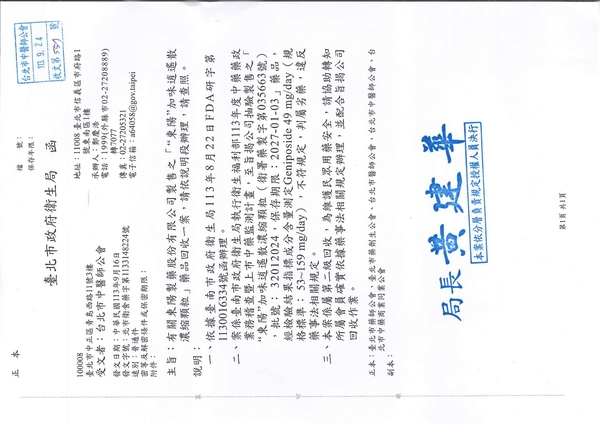 正本
檔 號:
保存年限:
臺北市政府衛生局 函
地址:11008 臺北市信義區市府路1
號東南區1樓
承辦人:郭慶浩
電話:1999(外縣市02-27208889)
轉7077
傳真:02-27205321
電子信箱:a64058@gov.taipei
台北市中醫師公會
113. 9. 24
收文第 號
100008
臺北市中正區青島西路11號3樓
受文者:台北市中醫師公會
發文日期:中華民國113年9月16日
發文字號:北市衛食藥字第1133148224號
速別:普通件
密等及解密條件或保密期限:
附件:
主旨:有關東陽製藥股份有限公司製售之「"東陽"加味逍遙散
濃縮顆粒」藥品回收一案,請依說明段辦理,請查照。
說明:
一、依據臺南市政府衛生局113年8月22日FDA研字第
1130016334號函辦理。
二、案係臺南市政府衛生局執行衛生福利部113年度中藥藥政
業務稽查暨上市中藥監測計畫,至旨揭公司抽驗製售之「
"東陽"加味逍遙散濃縮顆粒(衛署藥製字第035663號)
,批號:32012024,保存期限:2027-01-03」藥品,
經檢驗結果指標成分含量測定Geniposide 49 mg/day(規
格標準:53-159 mg/day),不符規定,判屬劣藥,違反
藥事法相關規定。
三、本案係屬第二級回收,為維護民眾用藥安全,請協助轉知
所屬會員確實依據藥事法相關規定辦理,並配合旨揭公司
回收作業。
正本:臺北市藥師公會、臺北市藥劑生公會、台北市中醫師公會、台
北市中藥商業同業公會
副本:
局長 黃建華
本案依分層負責規定授權人員決行
第1頁 共1頁